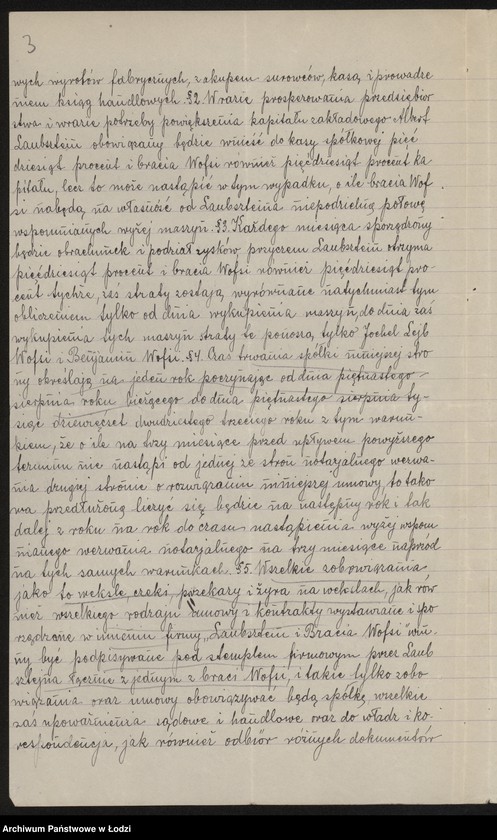 3
wych wyrobów fabrycznych, zakupem surowców, kasą i prowadze
niem ksiąg handlowych. §2. W razie prosperowania przedsiębior
stwa i w razie potrzeby powiększenia kapitału zakładowego Albert
Laubstein obowiązany będzie wnieść do kasy spółkowej pięć
dziesiąt procent i bracia Wofsi również pięćdziesiąt procent ka
pitału, lecz to może nastąpić w tym wypadku, o ile bracia Wof
si nabędą na własność od Laubsteina niepodzielną połowę
wspomnianych wyżej maszyn. §3. Każdego miesiąca sporządzony
będzie obrachunek i podział zysków, przyczem Laubstein otrzyma
pięćdziesiąt procent i bracia Wofsi również pięćdziesiąt pro-
cent tychże, zaś straty zostają wyrównane natychmiast tym
obliczeniem tylko od dnia wykupienia maszyn, do dnia zaś
wykupienia tych maszyn straty te ponoszą tylko Jochel Lejb
Wofsi i Benjamin Wofsi. §4. Czas trwania spółki niniejszej stro
ny określają na jeden rok poczynając od dnia piętnastego
sierpnia roku bieżącego do dnia piętnastego sierpnia ty-
siąc dziewięćset dwudziestego trzeciego roku z tym warun-
kiem, że o ile na trzy miesiące przed upływem powyższego
terminu nie nastąpi od jednej ze stron notarjalnego wezwa-
nia drugiej stronie o rozwiązaniu niniejszej umowy, to tako
wa przedłużoną liczyć się będzie na następny rok i tak
dalej z roku na rok do czasu nastąpienia wyżej wspom
nianego wezwania notarjalnego na trzy miesiące naprzód
na tych samych warunkach. §5. Wszelkie zobowiązania
jako to weksle, czeki, przekazy i żyra na wekslach, jak rów
nież wszelkiego rodzaju umowy i kontrakty wystawiane i spo
rządzone w imieniu firmy „Laubstein i Bracia Wofsi" win-
ny być podpisywane pod stemplem firmowym przez Laub
steina łącznie z jednym z braci Wofsi, i takie tylko zobo
wiązania oraz umowy obowiązywać będą spółkę, wszelkie
zaś upoważnienia sądowe i handlowe oraz do władz i ko-
respondencja, jak również odbiór różnych dokumentów
Archiwum Państwowe w Łodzi